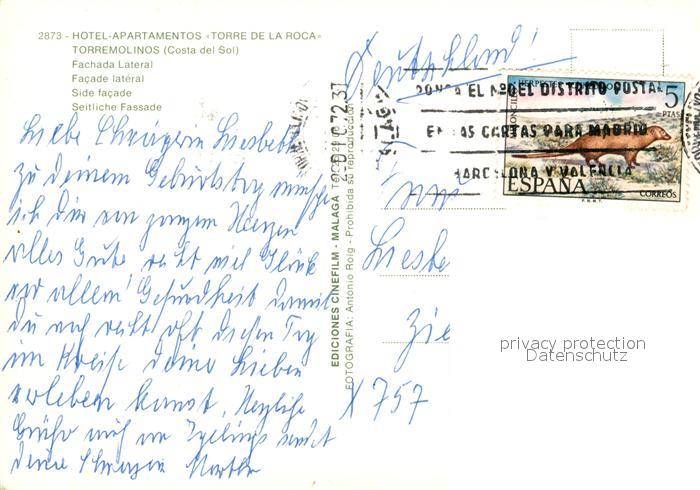 2873 - HOTEL-APARTAMENTOS «TORRE DE LA ROCA»
TORREMOLINOS (Costa del Sol)
Fachada Lateral
Façade latéral
Side façade
Seitliche Fassade
Liebe Schwägerin Liesbeth
zu deinem Geburtstag wünsche
ich dir von ganzem Herzen
alles Gute recht viel Glück
vor allem Gesundheit damit
du noch recht oft diesen Tag
im Kreise deine Lieben
erleben kannst. Herzliche
Grüße auch an
deine Schwägerin
EDICIONES CINEFILM - MALAGA
FOTOGRAFIA: Antonio Roig - Prohibida su reproducción
Deutschland!
PONGA EL Nº DEL DISTRITO POSTAL
EN LAS CARTAS PARA MADRID
BARCELONA Y VALENCIA
5
PTAS
ESPAÑA
CORREOS
F.N.M.T.
Liesbe
Zie
X 757
privacy protection
Datenschutz